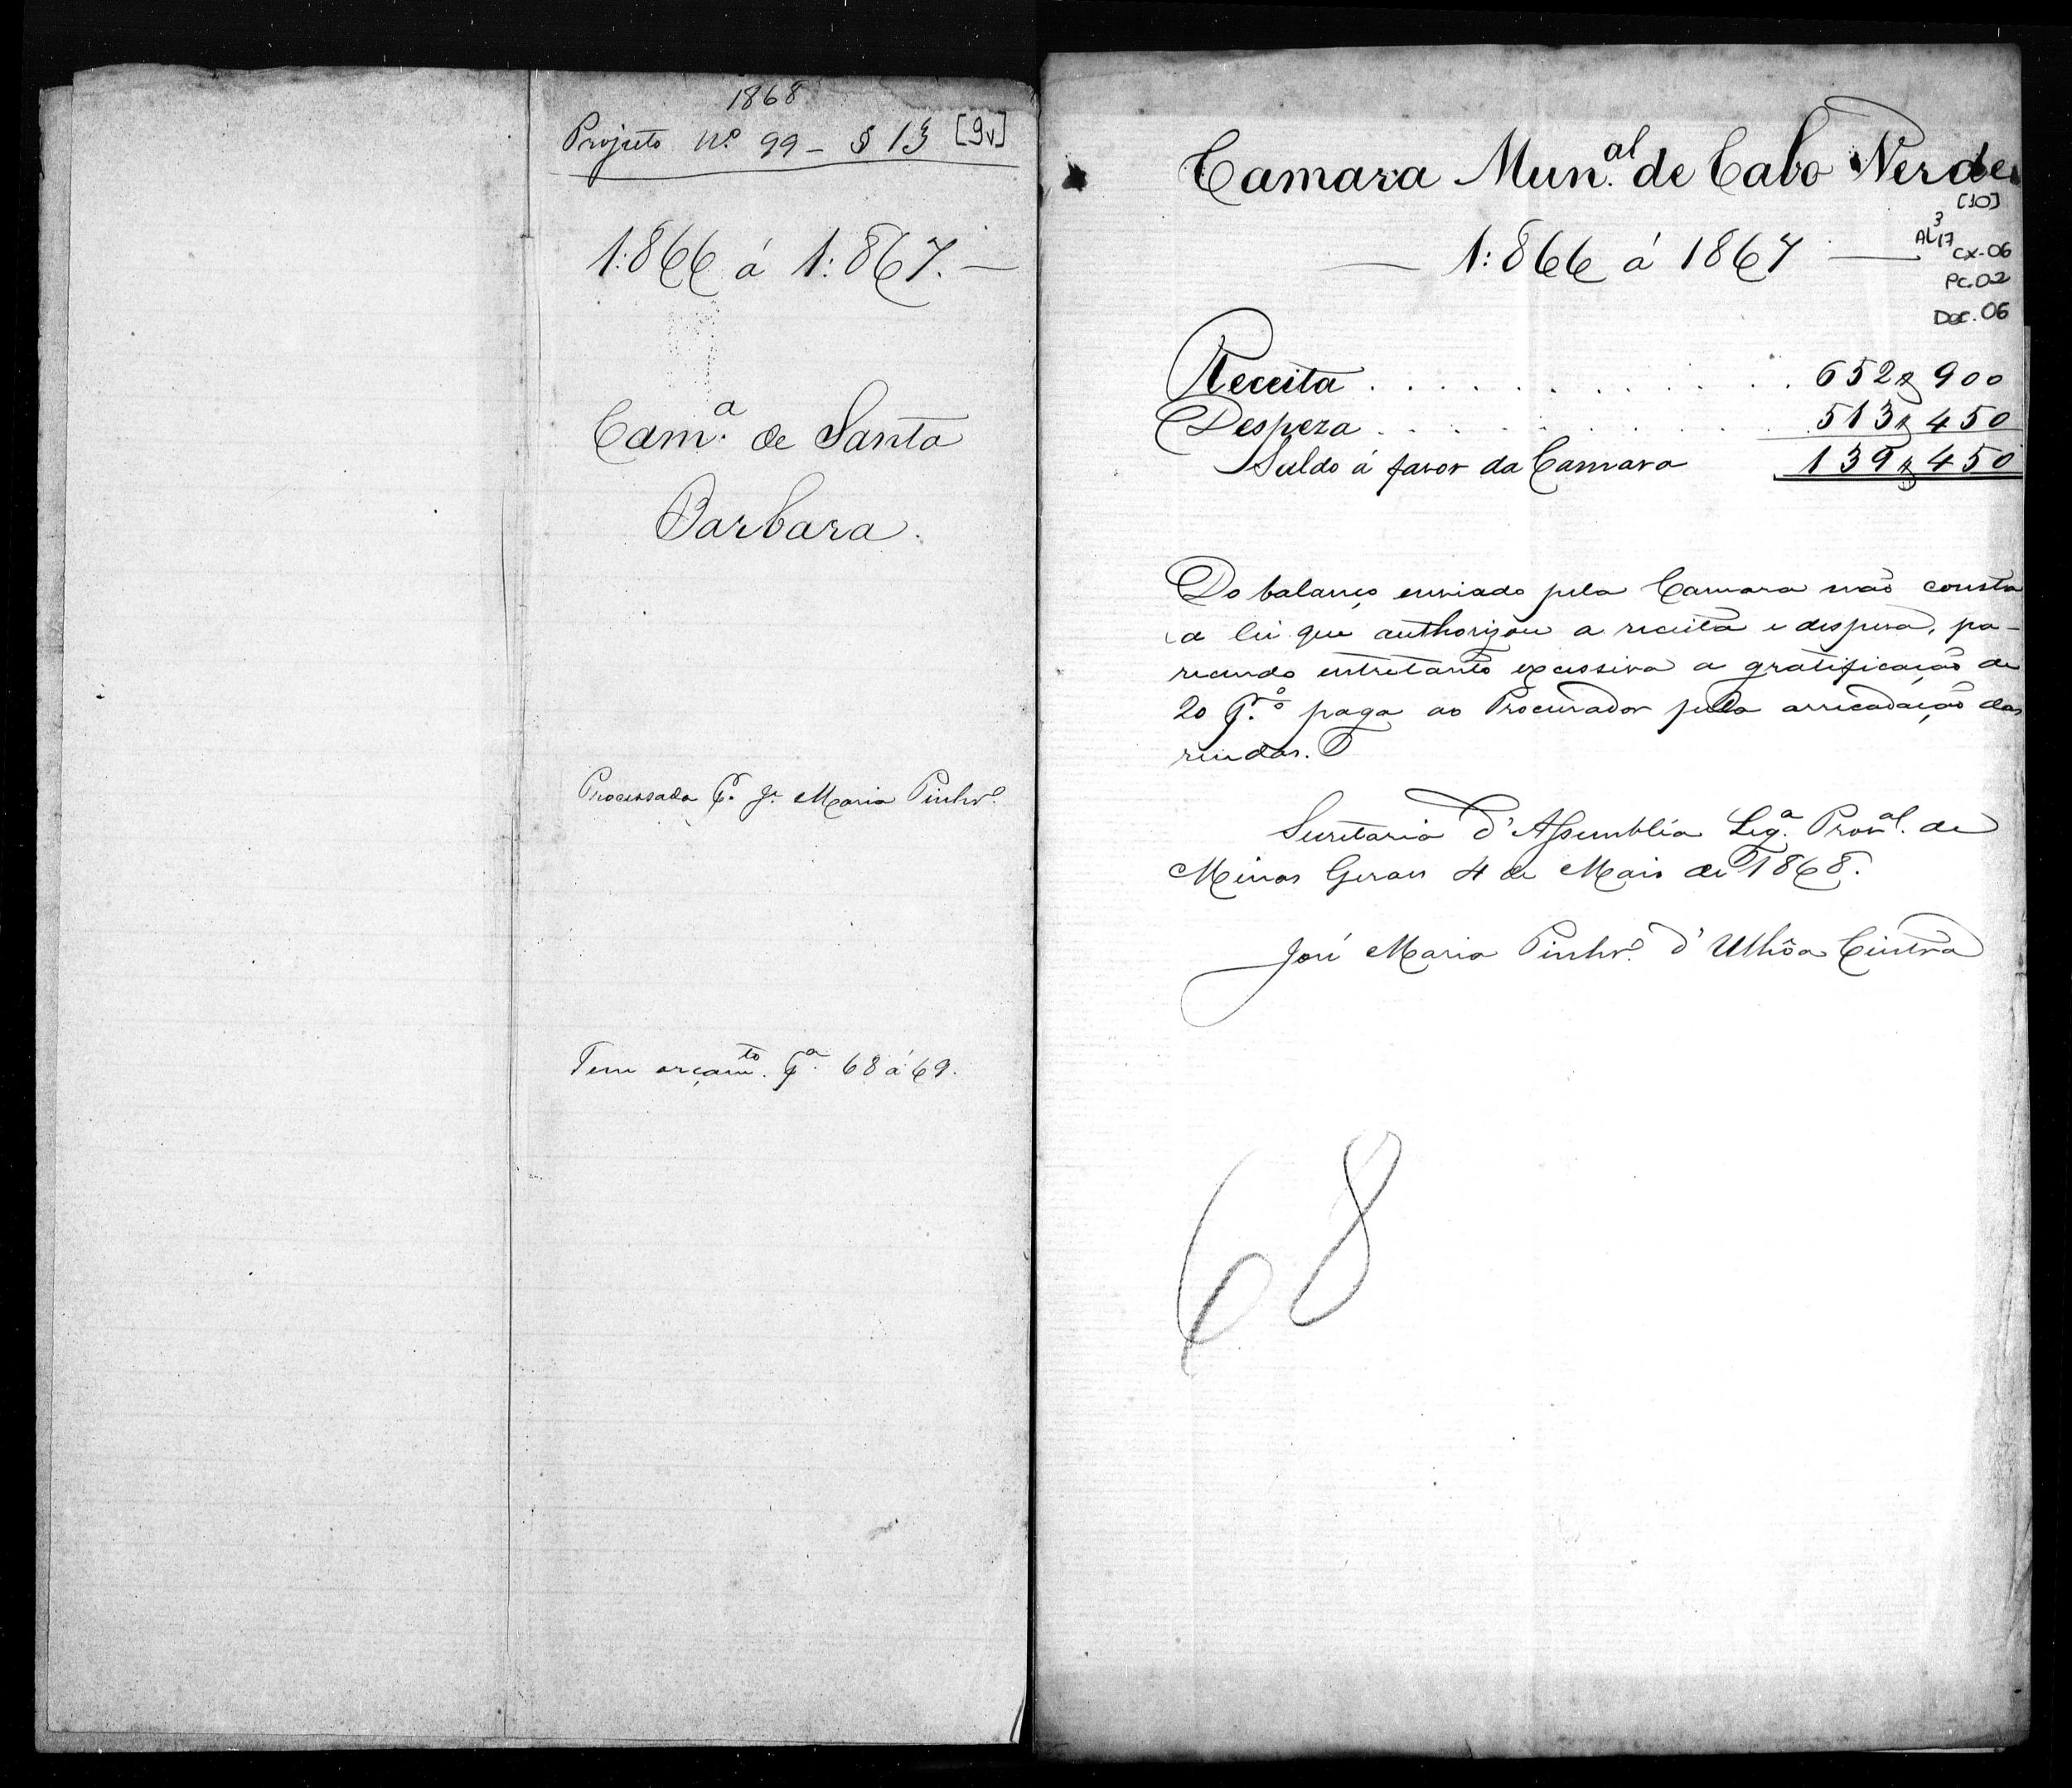 1868
Projecto Nº 99 - § 13 [9v]
1:866 á 1:867. —
Camª. de Santa
Barbara.
Processada P. Jé Maria Pinhrº.
Tem orçamto. Pª. 68 á 69.
Camara Munal. de Cabo Verde
[10]
— 1:866 á 1867 —
AL 3 17 cx-06
Pc.02
Doc.06
Receita . . . . . . . . . . . 652$900
Despeza . . . . . . . . . . . 513$450
Saldo á favor da Camara 139$450
Do balanço enviado pela Camara não consta
a lei que authorizou a receita e despesa, pa-
recendo entretanto excessiva a gratificação de
20 P.% paga ao Procurador pela arrecadação das
rendas.
Secretaria d'Assemblia Legª. Proval. de
Minas Geraes 4 de Maio de 1868.
José Maria Pinhrº. d'Ulhôa Cintra
68